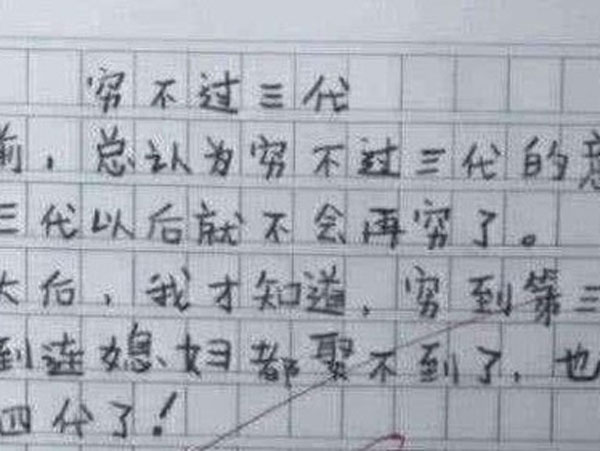 穷不过三代
前，总认为穷不过三代的意
三代以后就不会再穷了。
大后，我才知道，穷到第三
到连媳妇都娶不到了，也
四代了！